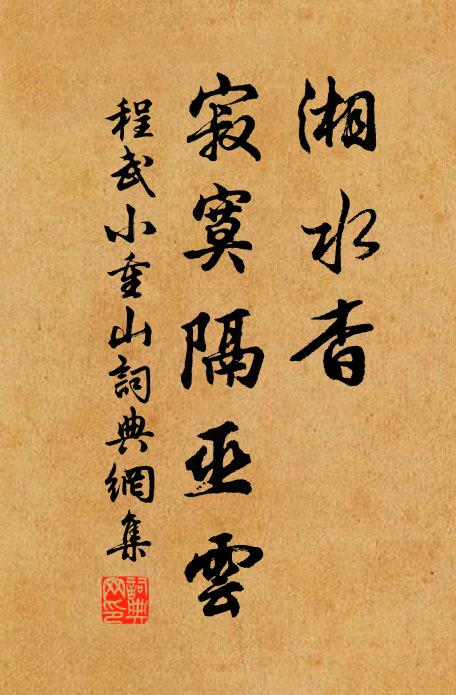 湘水杳
寂寞隔巫雲
程武小重山詞典網集
詞典網印